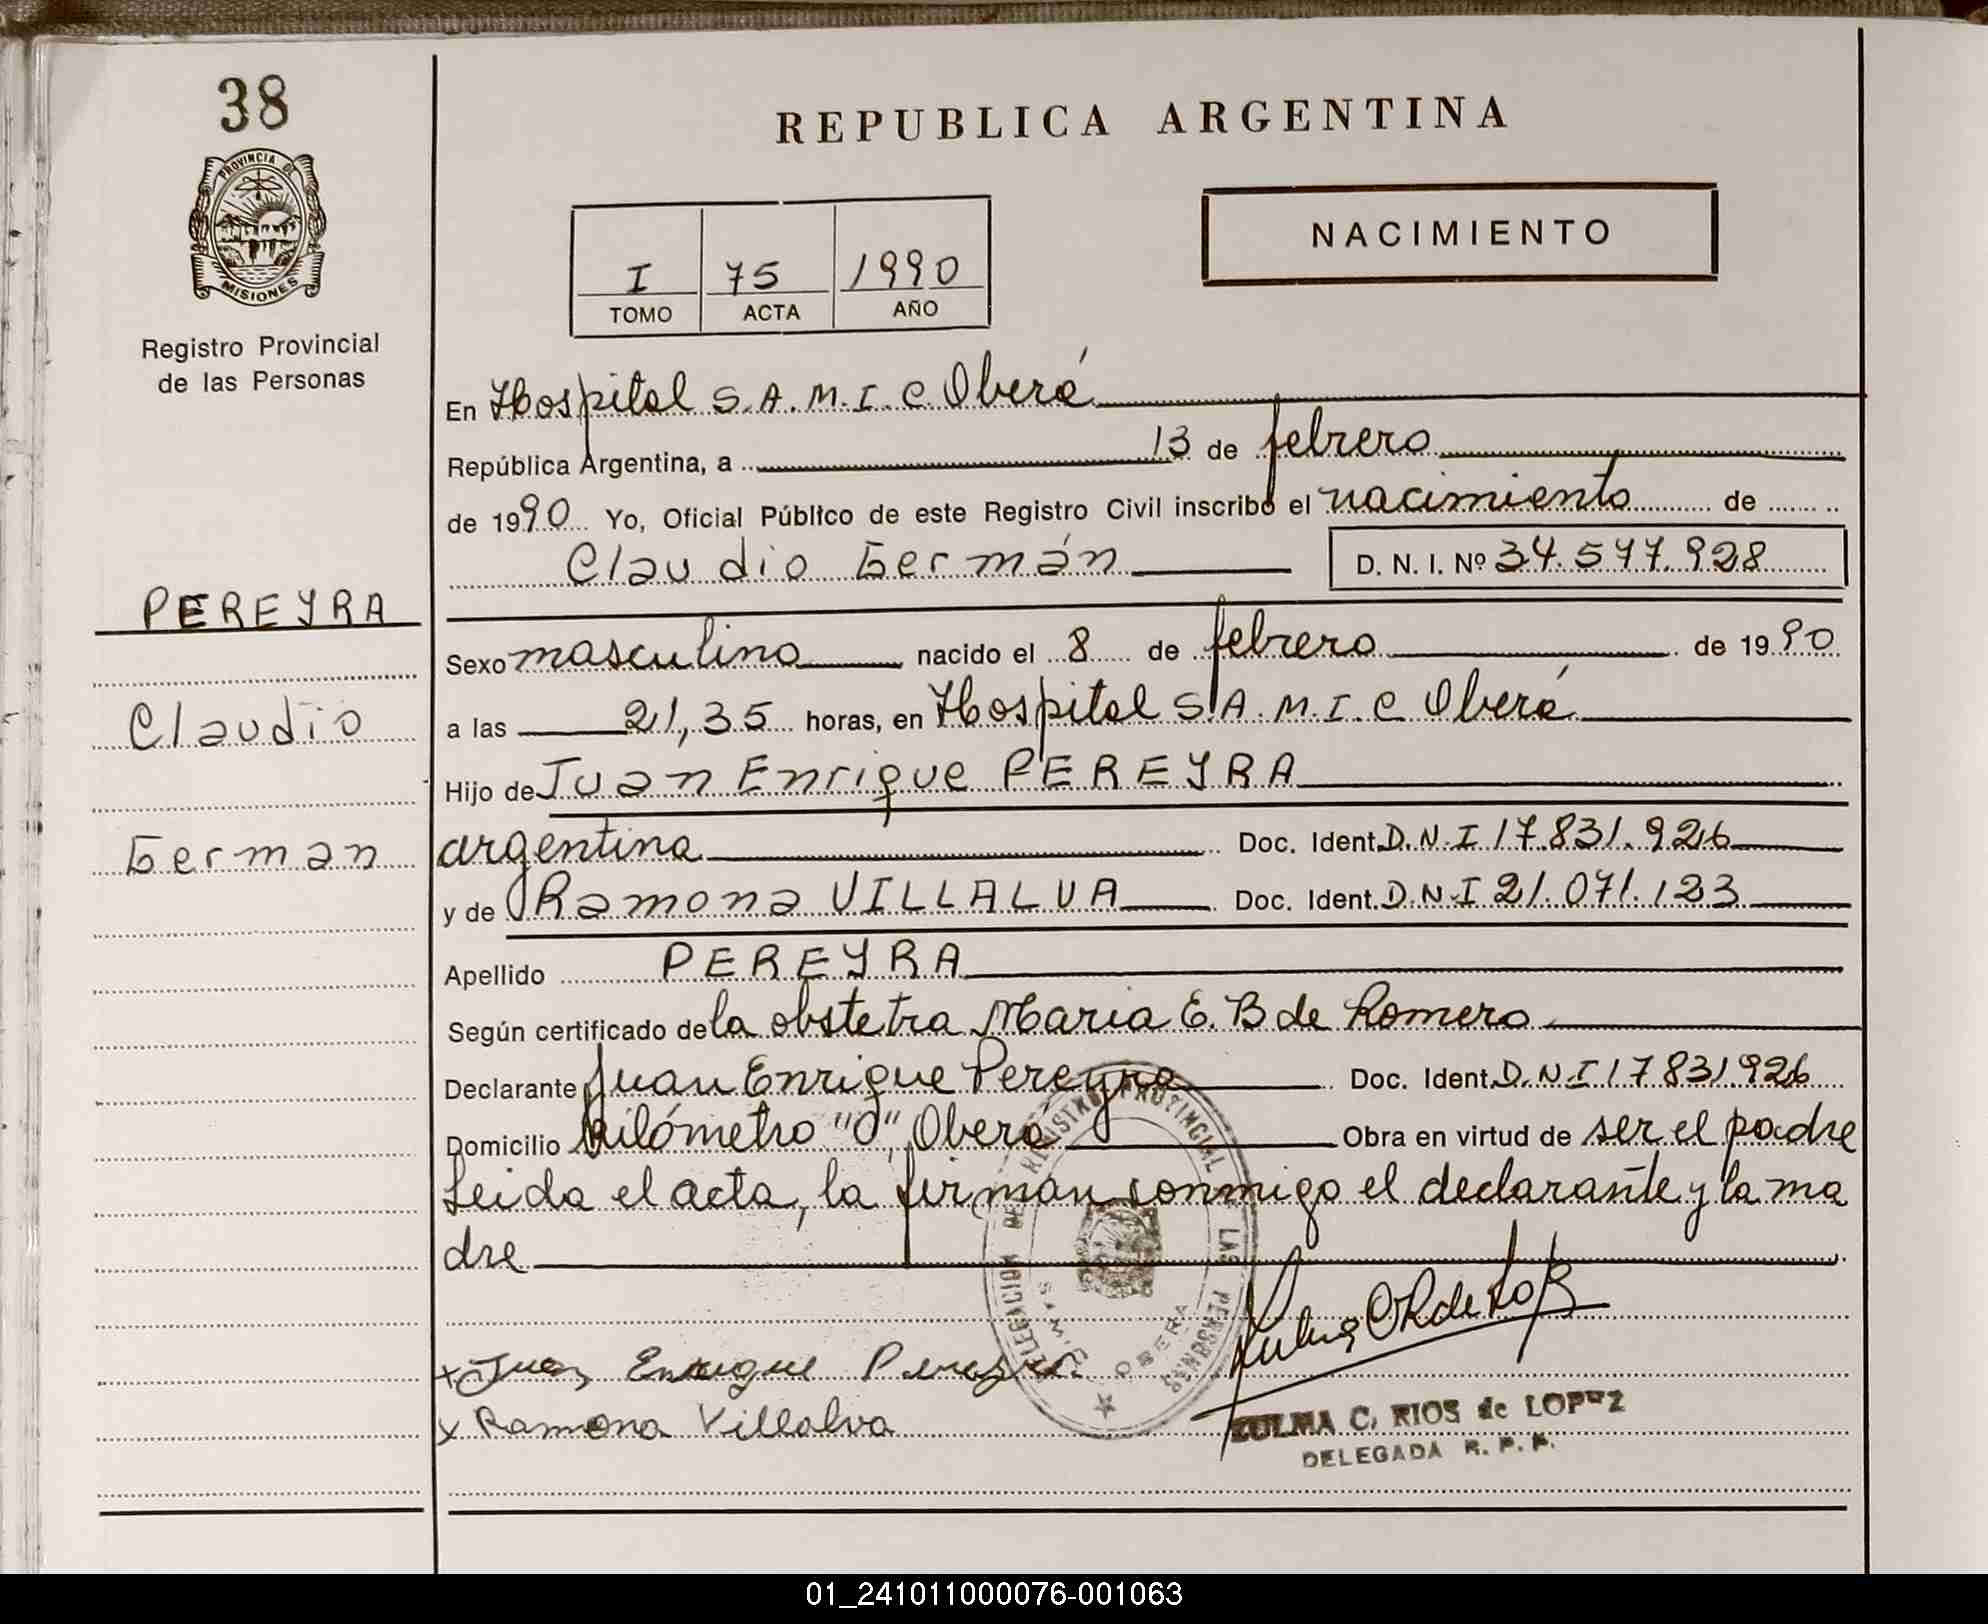 38
PROVINCIA DE
MISIONES
Registro Provincial
de las Personas
PEREYRA
Claudio
German
REPUBLICA ARGENTINA
I 75 1990
TOMO ACTA AÑO
NACIMIENTO
En Hospital S.A.M.I.C. Oberá
República Argentina, a 13 de febrero
de 1990 Yo, Oficial Público de este Registro Civil inscribo el nacimiento de
Claudio Germán D. N. I. Nº 34.577.928
Sexo masculino nacido el 8 de febrero de 1990
a las 21,35 horas, en Hospital S.A.M.I.C Oberá
Hijo de Juan Enrique PEREYRA
argentina Doc. Ident. D.N.I 17.831.926
y de Ramona VILLALVA Doc. Ident. D.N.I 21.071.123
Apellido PEREYRA
Según certificado de la obstetra Maria E. B de Romero
Declarante Juan Enrique Pereyra Doc. Ident. D.N.I 17831926
Domicilio kilómetro "0", Oberá Obra en virtud de ser el padre
Leida el acta, la firman conmigo el declarante y la ma
dre
DELEGACION DEL REGISTRO PROVINCIAL DE LAS PERSONAS
S.A.M.I.C. OBERA
x Juan Enrique Pereyra
x Ramona Villalva
ZULMA C. RIOS de LOPEZ
DELEGADA R. P. P.
01_241011000076-001063